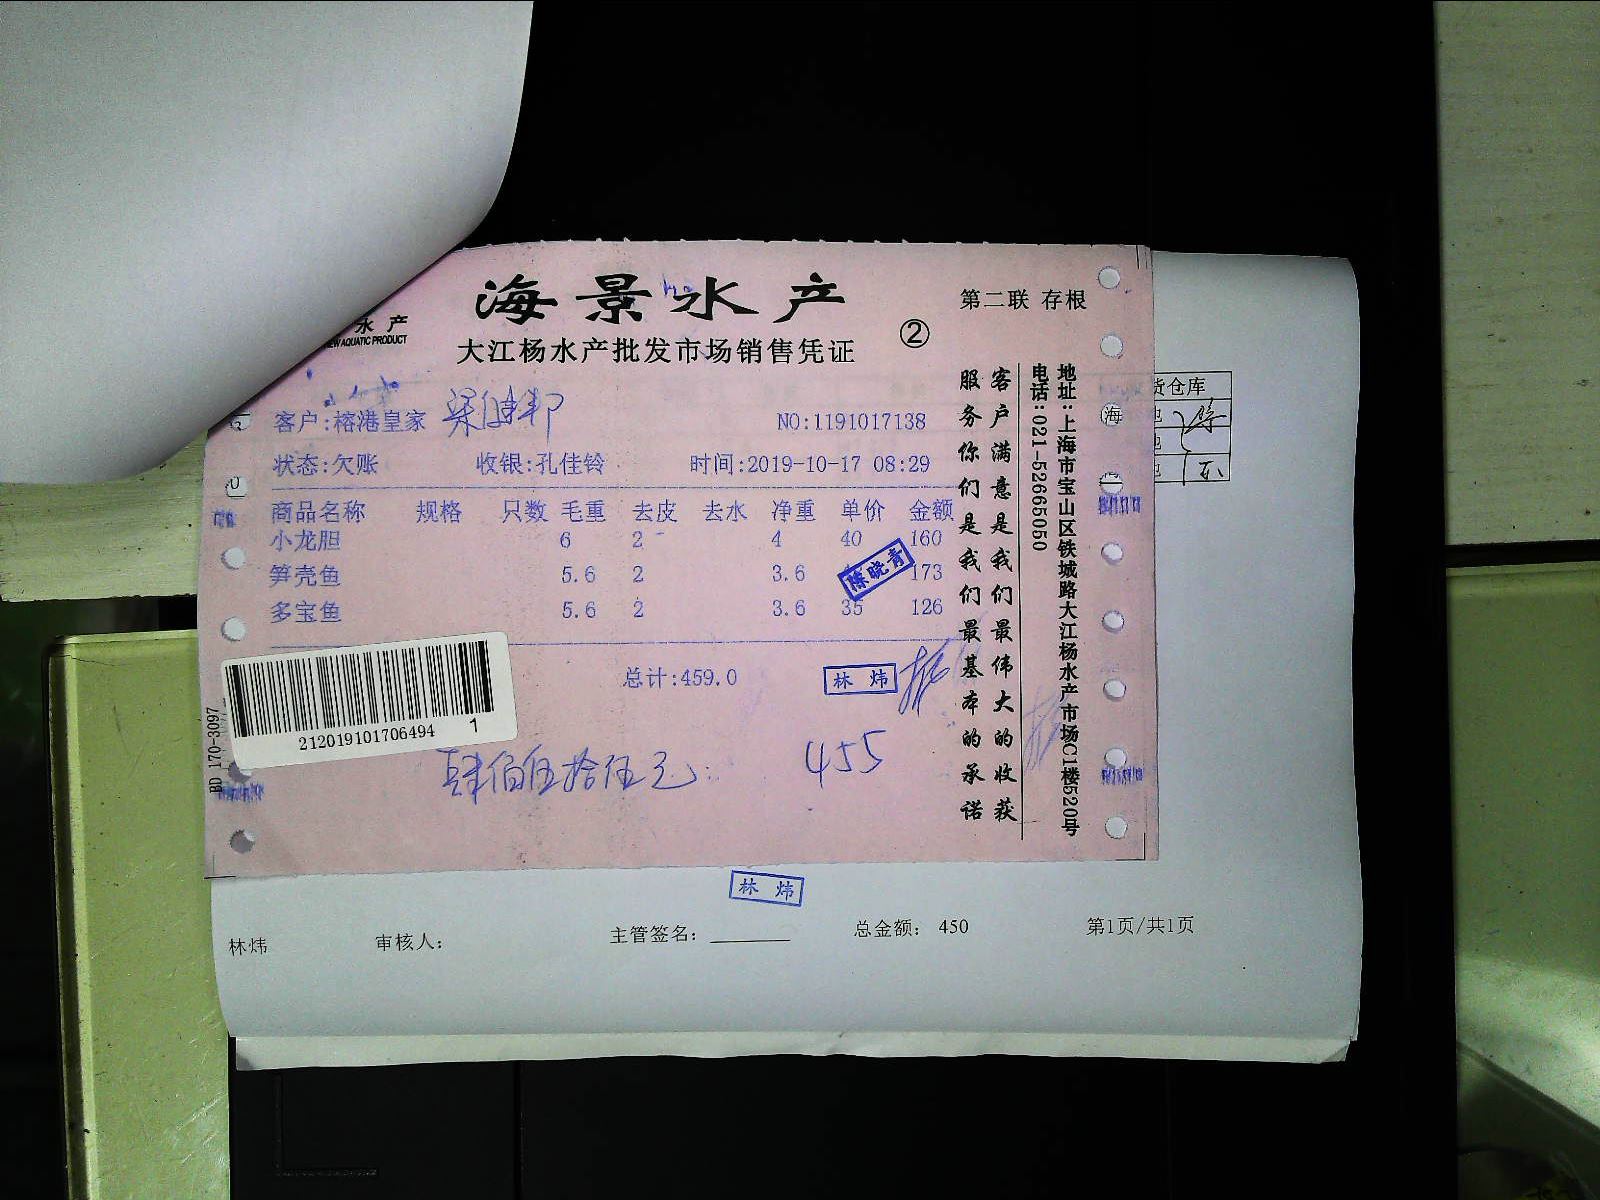 海景水产
第二联 存根
水产
NEW AQUATIC PRODUCT
大江杨水产批发市场销售凭证
②
客户:榕港皇家 NO:1191017138
状态:欠账 收银:孔佳铃 时间:2019-10-17 08:29
商品名称 规格 只数 毛重 去皮 去水 净重 单价 金额
小龙胆 6 2 4 40 160
笋壳鱼 5.6 2 3.6 173
多宝鱼 5.6 2 3.6 35 126
陈晓青
总计:459.0
林炜
212019101706494 1
BD 170-3097
肆佰伍拾伍元 455
客户满意是我们最伟大的收获
服务你们是我们最基本的承诺
地址:上海市宝山区铁城路大江杨水产市场C1楼520号
电话:021-52665050
货仓库
海
林炜
林炜 审核人: 主管签名: 总金额: 450 第1页/共1页